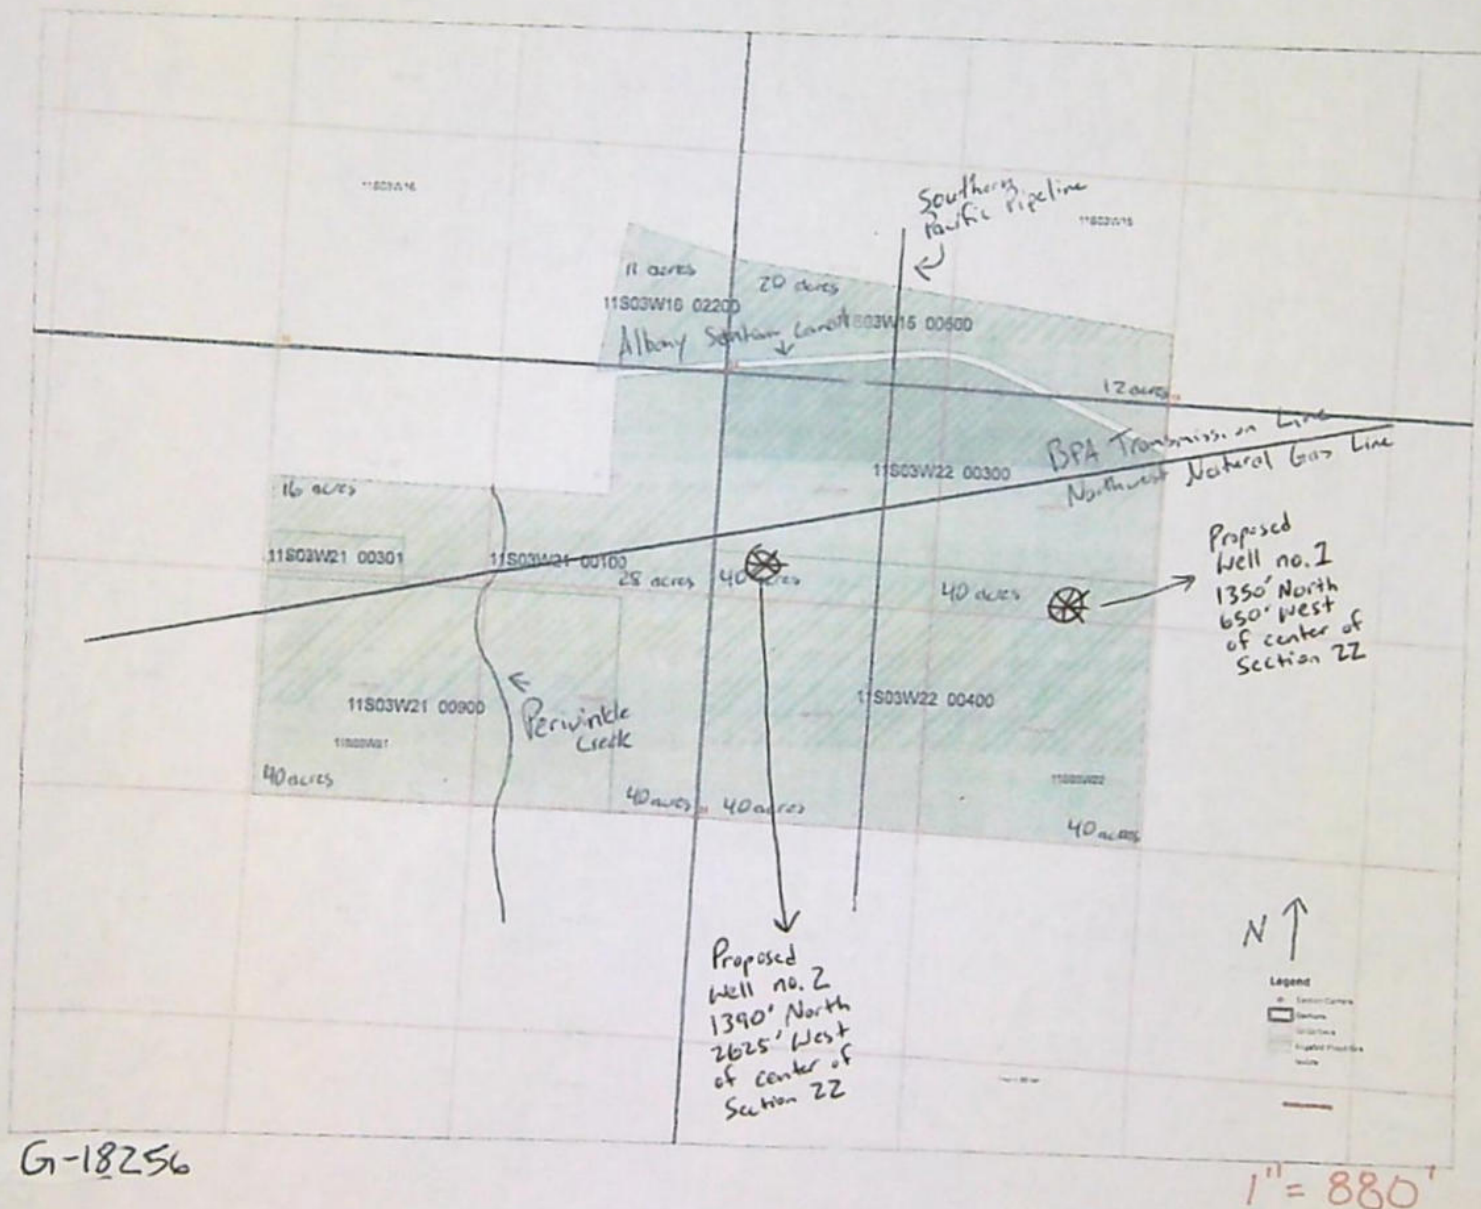 11S03W16
Southern
Pacific Pipeline
11S03W15
11 acres
20 acres
11S03W16 02200
03W15 00600
Albany Santiam Canal
12 acres
BPA Transmission Line
Northwest Natural Gas Line
11S03W22 00300
16 acres
11S03W21 00301
11S03W21 00100
28 acres
40 acres
40 acres
Proposed
Well no. 1
1350' North
650' West
of center of
Section 22
11S03W21 00900
11S03W22 00400
Periwinkle
Creek
11S03W21
11S03W22
40 acres
40 acres
40 acres
40 acres
Proposed
Well no. 2
1390' North
2625' West
of center of
Section 22
N
Legend
Section Corners
Sections
G-18256
1" = 880'